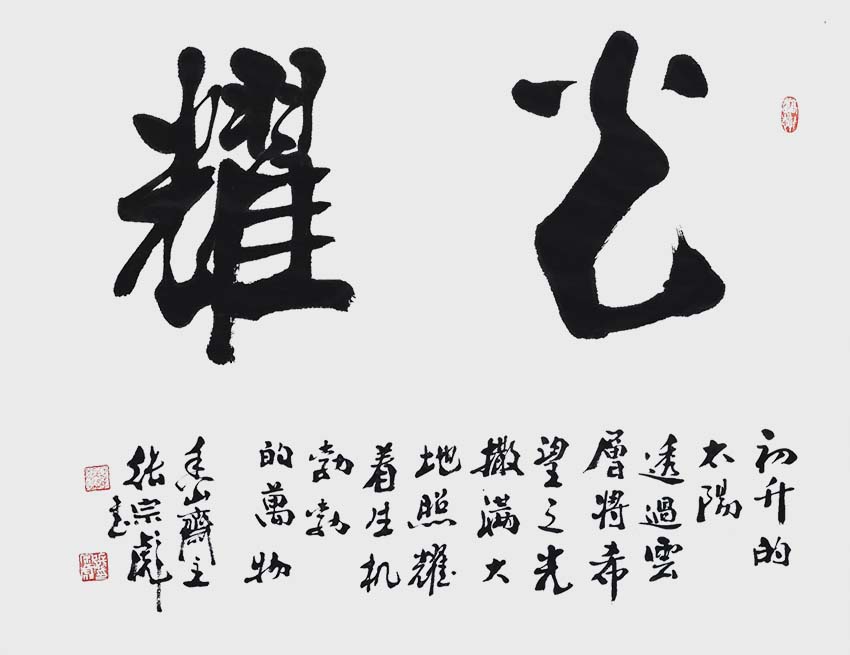 光耀
初升的
太陽
透過雲
層將希
望之光
撒滿大
地照耀
着生机
勃勃
的萬物
山齋主
張宗彪
書